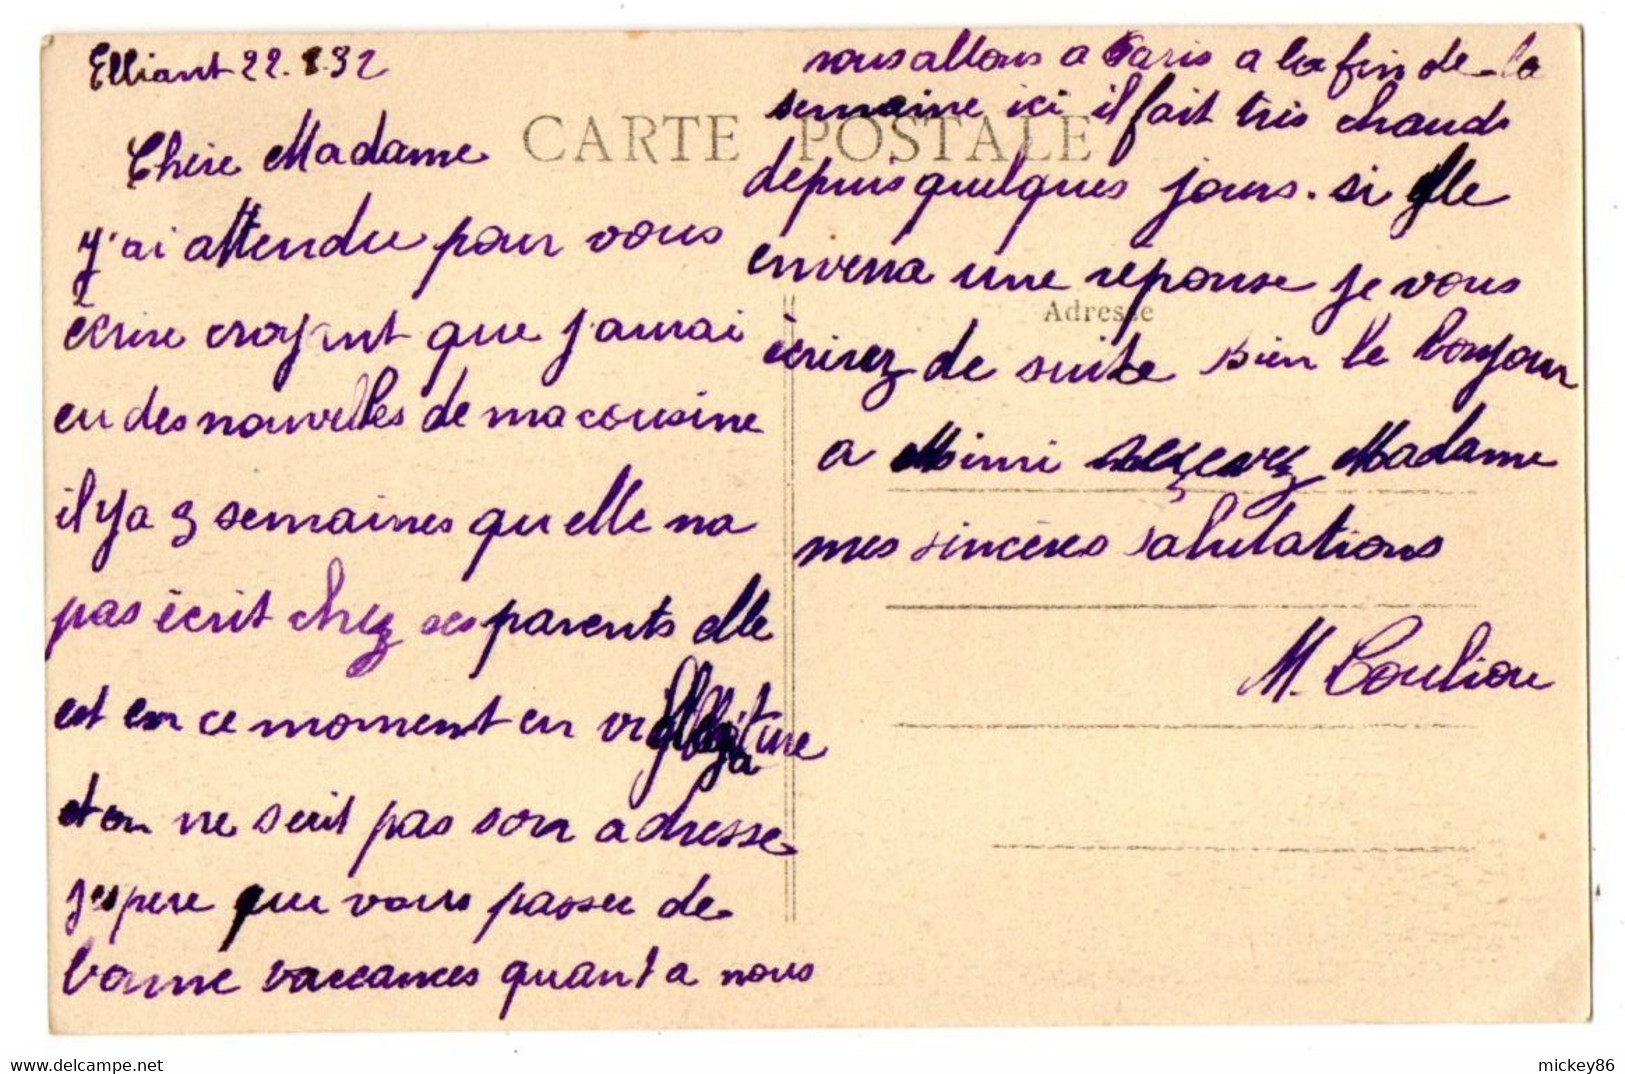 Elliant 22.8.32
CARTE POSTALE
Chère Madame
j'ai attendu pour vous
écrire croyant que j'aurai
eu des nouvelles de ma cousine
il y a 3 semaines qu elle na
pas écrit chez ses parents elle
est en ce moment en villégiature
et on ne seait pas son adresse
j'espere que vous passer de
bonne vaccances quant a nous
nous allons a Paris a la fin de la
semaine ici il fait très chaud
depuis quelques jours. si elle
enverra une réponse je vous
Adresse
écrirez de suite bien le bonjour
a Mimi recevez Madame
mes sincères salutations
M. Couliou
mickey86